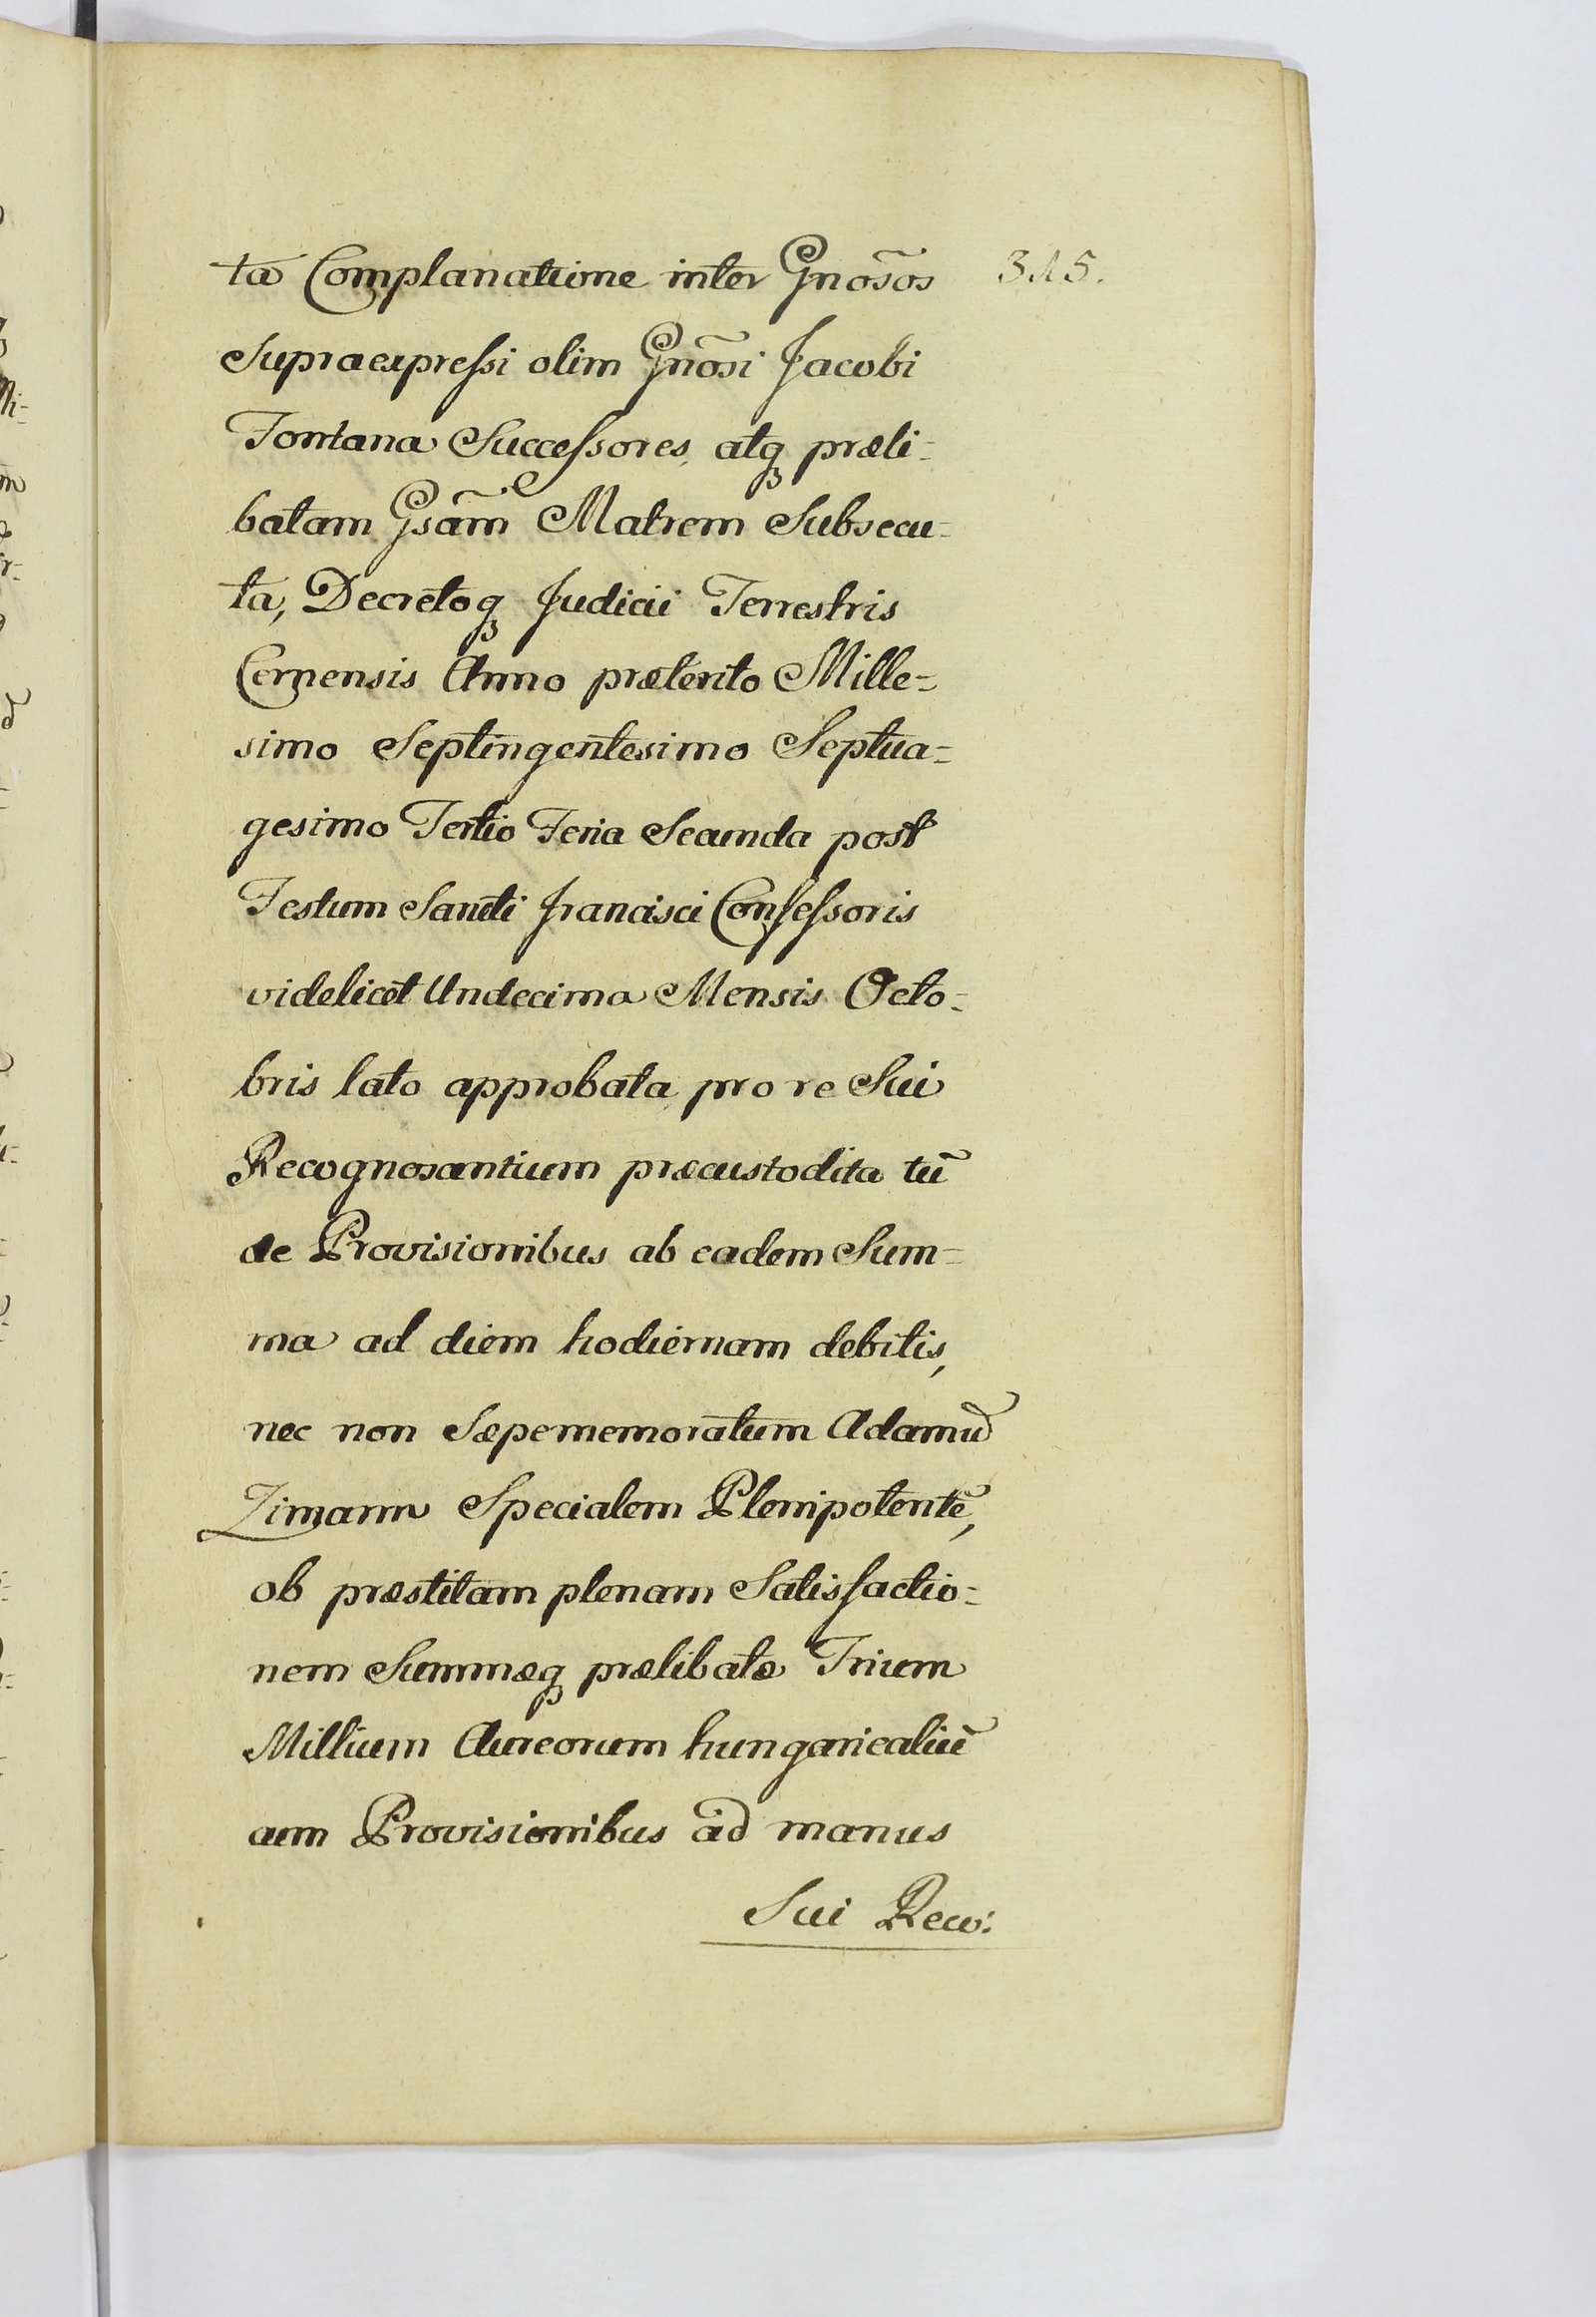 ta Complanatione inter Gnõsos 315.
Supraexpressi olim Gnõsi Jacobi
Fontana Successores, atq præli-
batam Gsãm Matrem Subsecu-
ta, Decretoq Judicii Terrestris
Cernensis Anno præterito Mille-
simo Septingentesimo Septua-
gesimo Tertio Feria Secunda post
Festum Sancti Francisci Confessoris
videlicet Undecima Mensis Octo-
bris lato approbata, pro re Sui
Recognoscentium præcustodita tũ
de Provisionibus ab eadem Sum-
ma ad diem hodiernam debitis,
nec non Sæpememoratum Adamũ
Zimann Specialem Plenipotentẽ,
ob præstitam plenam Satisfactio-
nem Summæq prælibatæ Trium
Millium Aureorum hungaricaliũ
cum Provisionibus ad manus
Sui Reco: